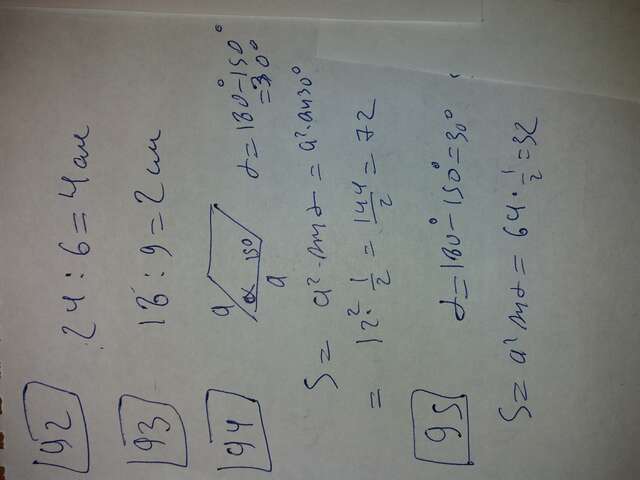 92
24 : 6 = 4 см
93
18 : 9 = 2 см
94
a
α 150
a
α = 180° - 150°
= 30°
S = a² · sin α = a² · sin 30°
= 12² · 1/2 = 144/2 = 72
95
α = 180° - 150° = 30°
S = a² sin α = 64 · 1/2 = 32